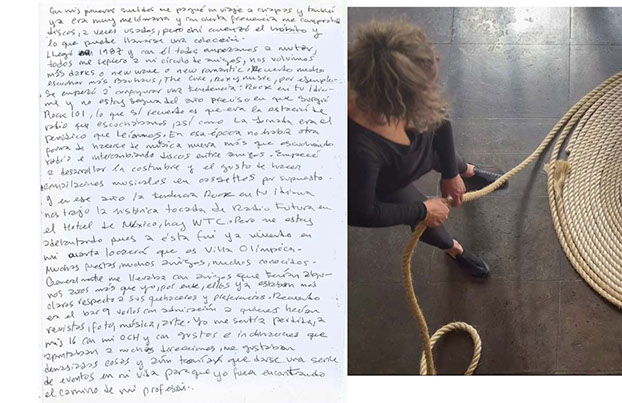 Con mis primeros sueldos me pagué un viaje a Chiapas y también
ya era muy melómana y con cierta frecuencia me compraba
discos, a veces usados, pero ahí comenzó el hábito y
lo que puede llamarse una colección.
Llegó 1987 y con él todos empezamos a mutar,
todos me refiero a mi círculo de amigos, nos volvimos
más darks o new wave o new romantic. Recuerdo mucho
escuchar más Bauhaus, The Cure, Roxy Music, por ejemplo.
Se empezó a configurar una tendencia: Rock en tu idio-
ma y no estoy segura del año preciso en que surgió
Rock 101, lo que sí recuerdo es que era la estación de
radio que escuchábamos, así como La Jornada era el
periódico que leíamos. En esa época no había otra
forma de hacerse de música nueva más que escuchando
radio e intercambiando discos entre amigos. Empecé
a desarrollar la costumbre y el gusto de hacer
compilaciones musicales en cassettes por supuesto.
Y en ese año la tendencia Rock en tu idioma
nos trajo la histórica tocada de Radio Futura en
el Hotel de México, hoy WTC. Pero me estoy
adelantando pues a ésta fui ya viviendo en
mi cuarta locación que es Villa Olímpica.
Muchas fiestas, muchos amigos, muchos conocidos.
Generalmente me llevaba con amigos que tenían algu-
nos años más que yo, por ente, ellos ya estaban más
claros respecto a sus quehaceres y preferencias. Recuerdo
en el bar 9 verlos con admiración a quienes hacían
revistas, foto, música, arte. Yo me sentía perdida, a
mis 16 con mi CCH y con gustos e inclinaciones que
apuntaban a muchas direcciones, me gustaban
demasiadas cosas y aún tenían que darse una serie
de eventos en mi vida para que yo fuera encontrando
el camino de mi profesión.